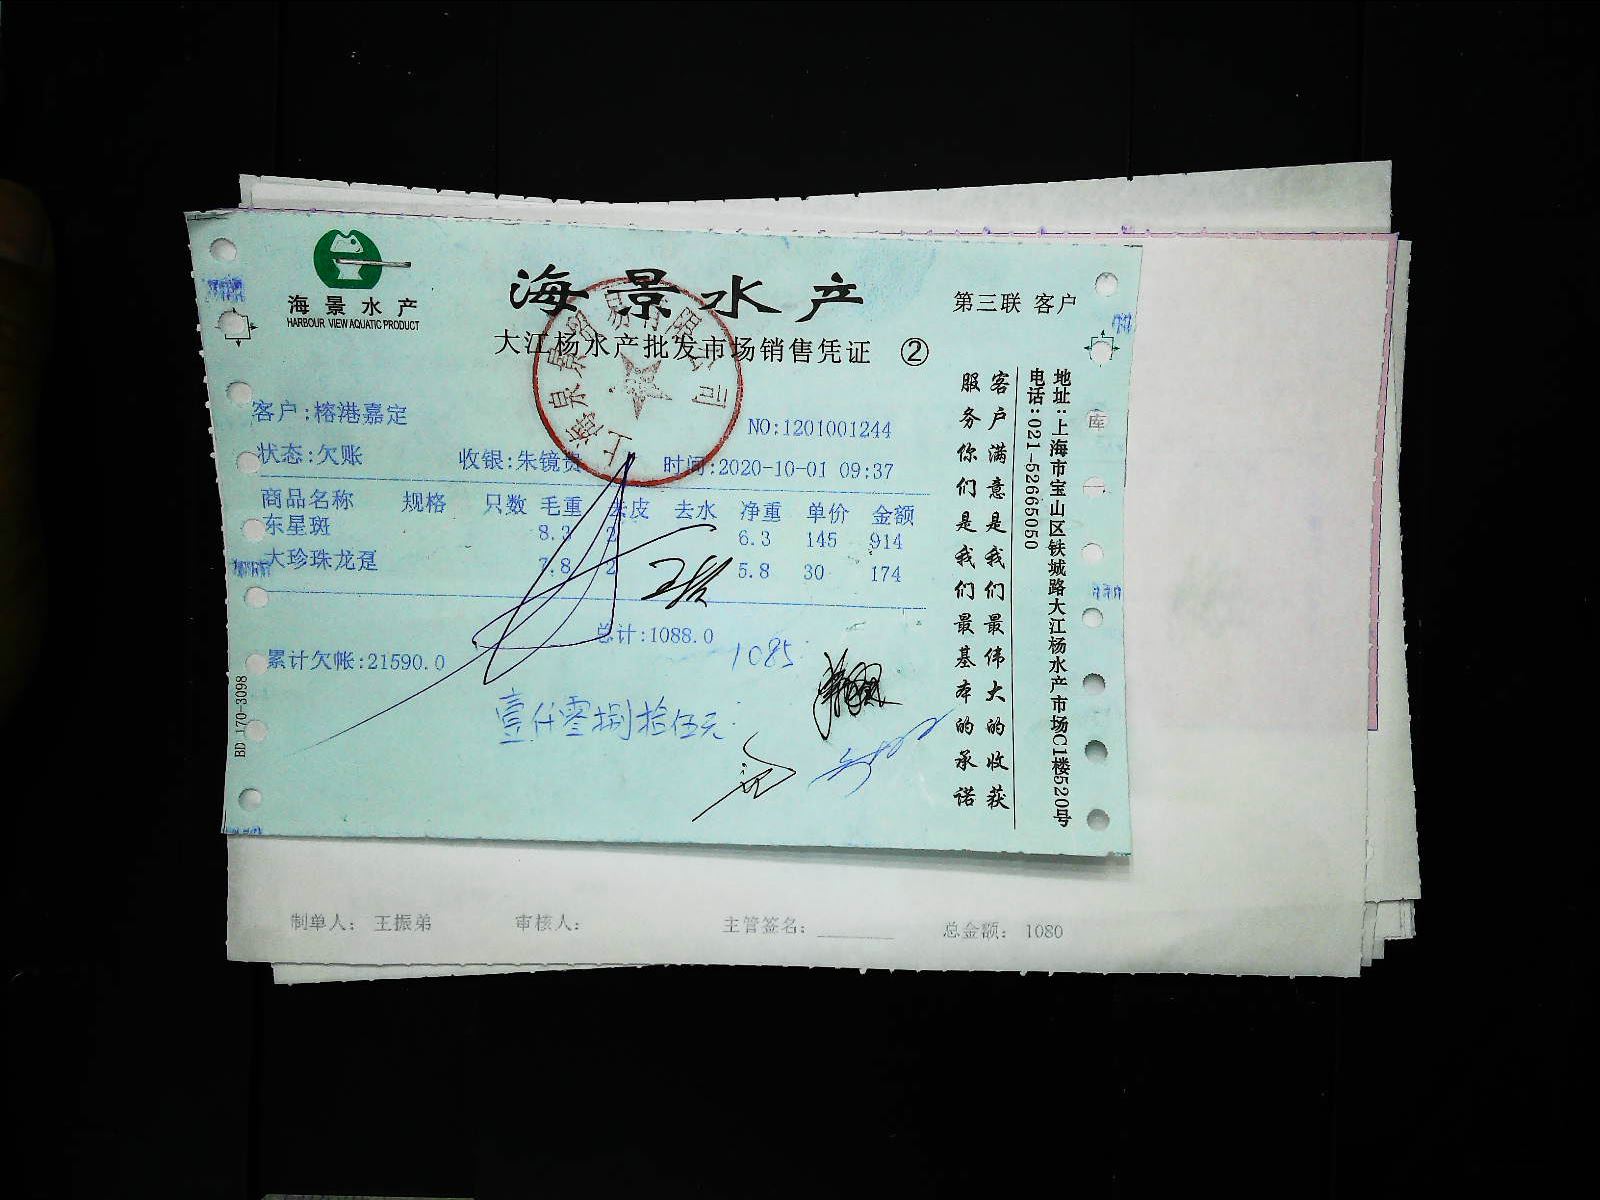 海景水产
HARBOUR VIEW AQUATIC PRODUCT
海景水产
第三联 客户
大江杨水产批发市场销售凭证 ②
客户:榕港嘉定
NO:1201001244
状态:欠账 收银:朱镜贵 时间:2020-10-01 09:37
商品名称 规格 只数 毛重 去皮 去水 净重 单价 金额
东星斑 8.3 2 6.3 145 914
大珍珠龙趸 7.8 2 5.8 30 174
总计:1088.0
1085
累计欠帐:21590.0
壹仟零捌拾伍元
客户满意是我们最伟大的收获
服务你们是我们最基本的承诺
地址:上海市宝山区铁城路大江杨水产市场C1楼520号
电话:021-52665050
库
BD 170-3098
制单人: 王振弟 审核人: 主管签名: 总金额: 1080